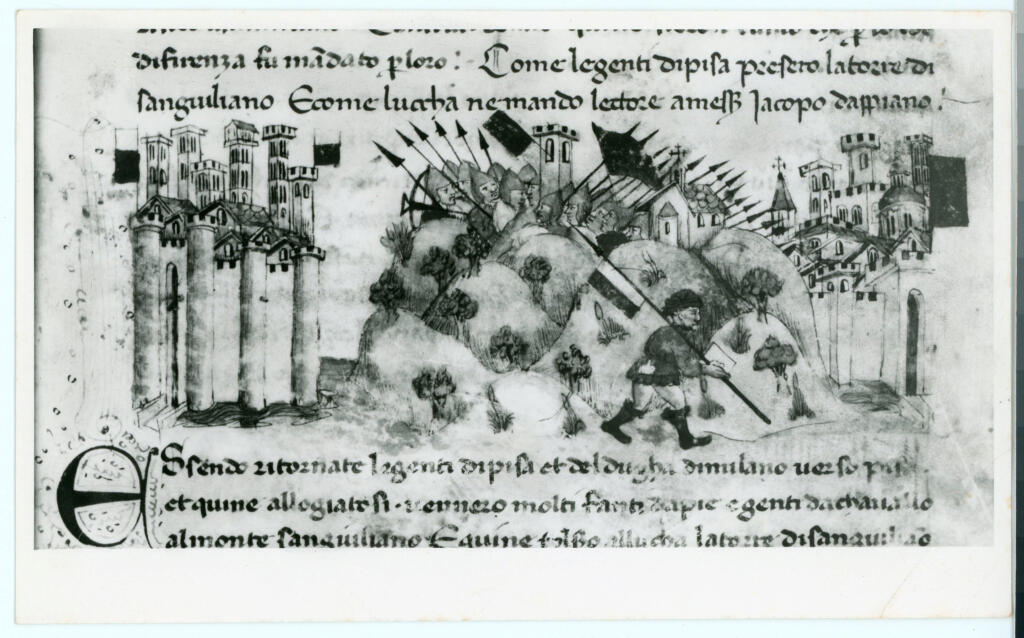 difirenza fu mãdato ꝑloro : Come legenti dipisa presero latorre di
sanguiliano Ecome luccha nemando lectore amess̃ Jacopo dappiano .
Essendo ritornate legenti dipisa et del dugha dimilano verso
et quine allogiatosi . vennero molti fanti dapie e genti dachauallo
almonte sanguiliano Equine allucha latorre disanguilião